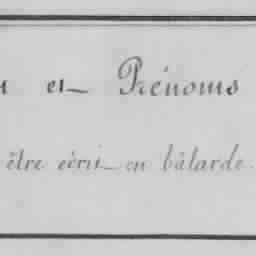 et Prénoms
être écrit en bâtarde.